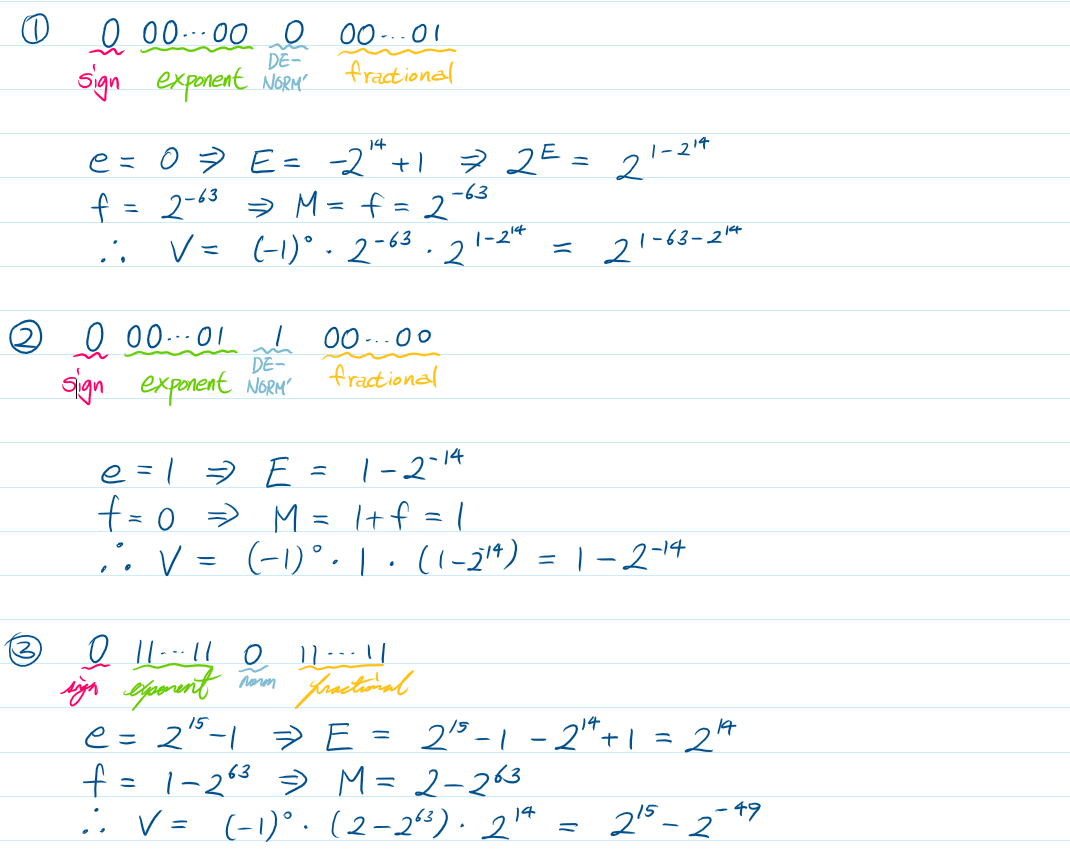 ① 0 00...00 0 00...01
sign exponent DE-NORM' fractional
e = 0 ⇒ E = -2^14 + 1 ⇒ 2^E = 2^(1-2^14)
f = 2^-63 ⇒ M = f = 2^-63
∴ V = (-1)^0 · 2^-63 · 2^(1-2^14) = 2^(1-63-2^14)
② 0 00...01 1 00...00
sign exponent DE-NORM' fractional
e = 1 ⇒ E = 1 - 2^-14
f = 0 ⇒ M = 1 + f = 1
∴ V = (-1)^0 · 1 · (1-2^-14) = 1 - 2^-14
③ 0 11...11 0 11...11
sign exponent norm fractional
e = 2^15 - 1 ⇒ E = 2^15 - 1 - 2^14 + 1 = 2^14
f = 1 - 2^63 ⇒ M = 2 - 2^63
∴ V = (-1)^0 · (2 - 2^63) · 2^14 = 2^15 - 2^-49